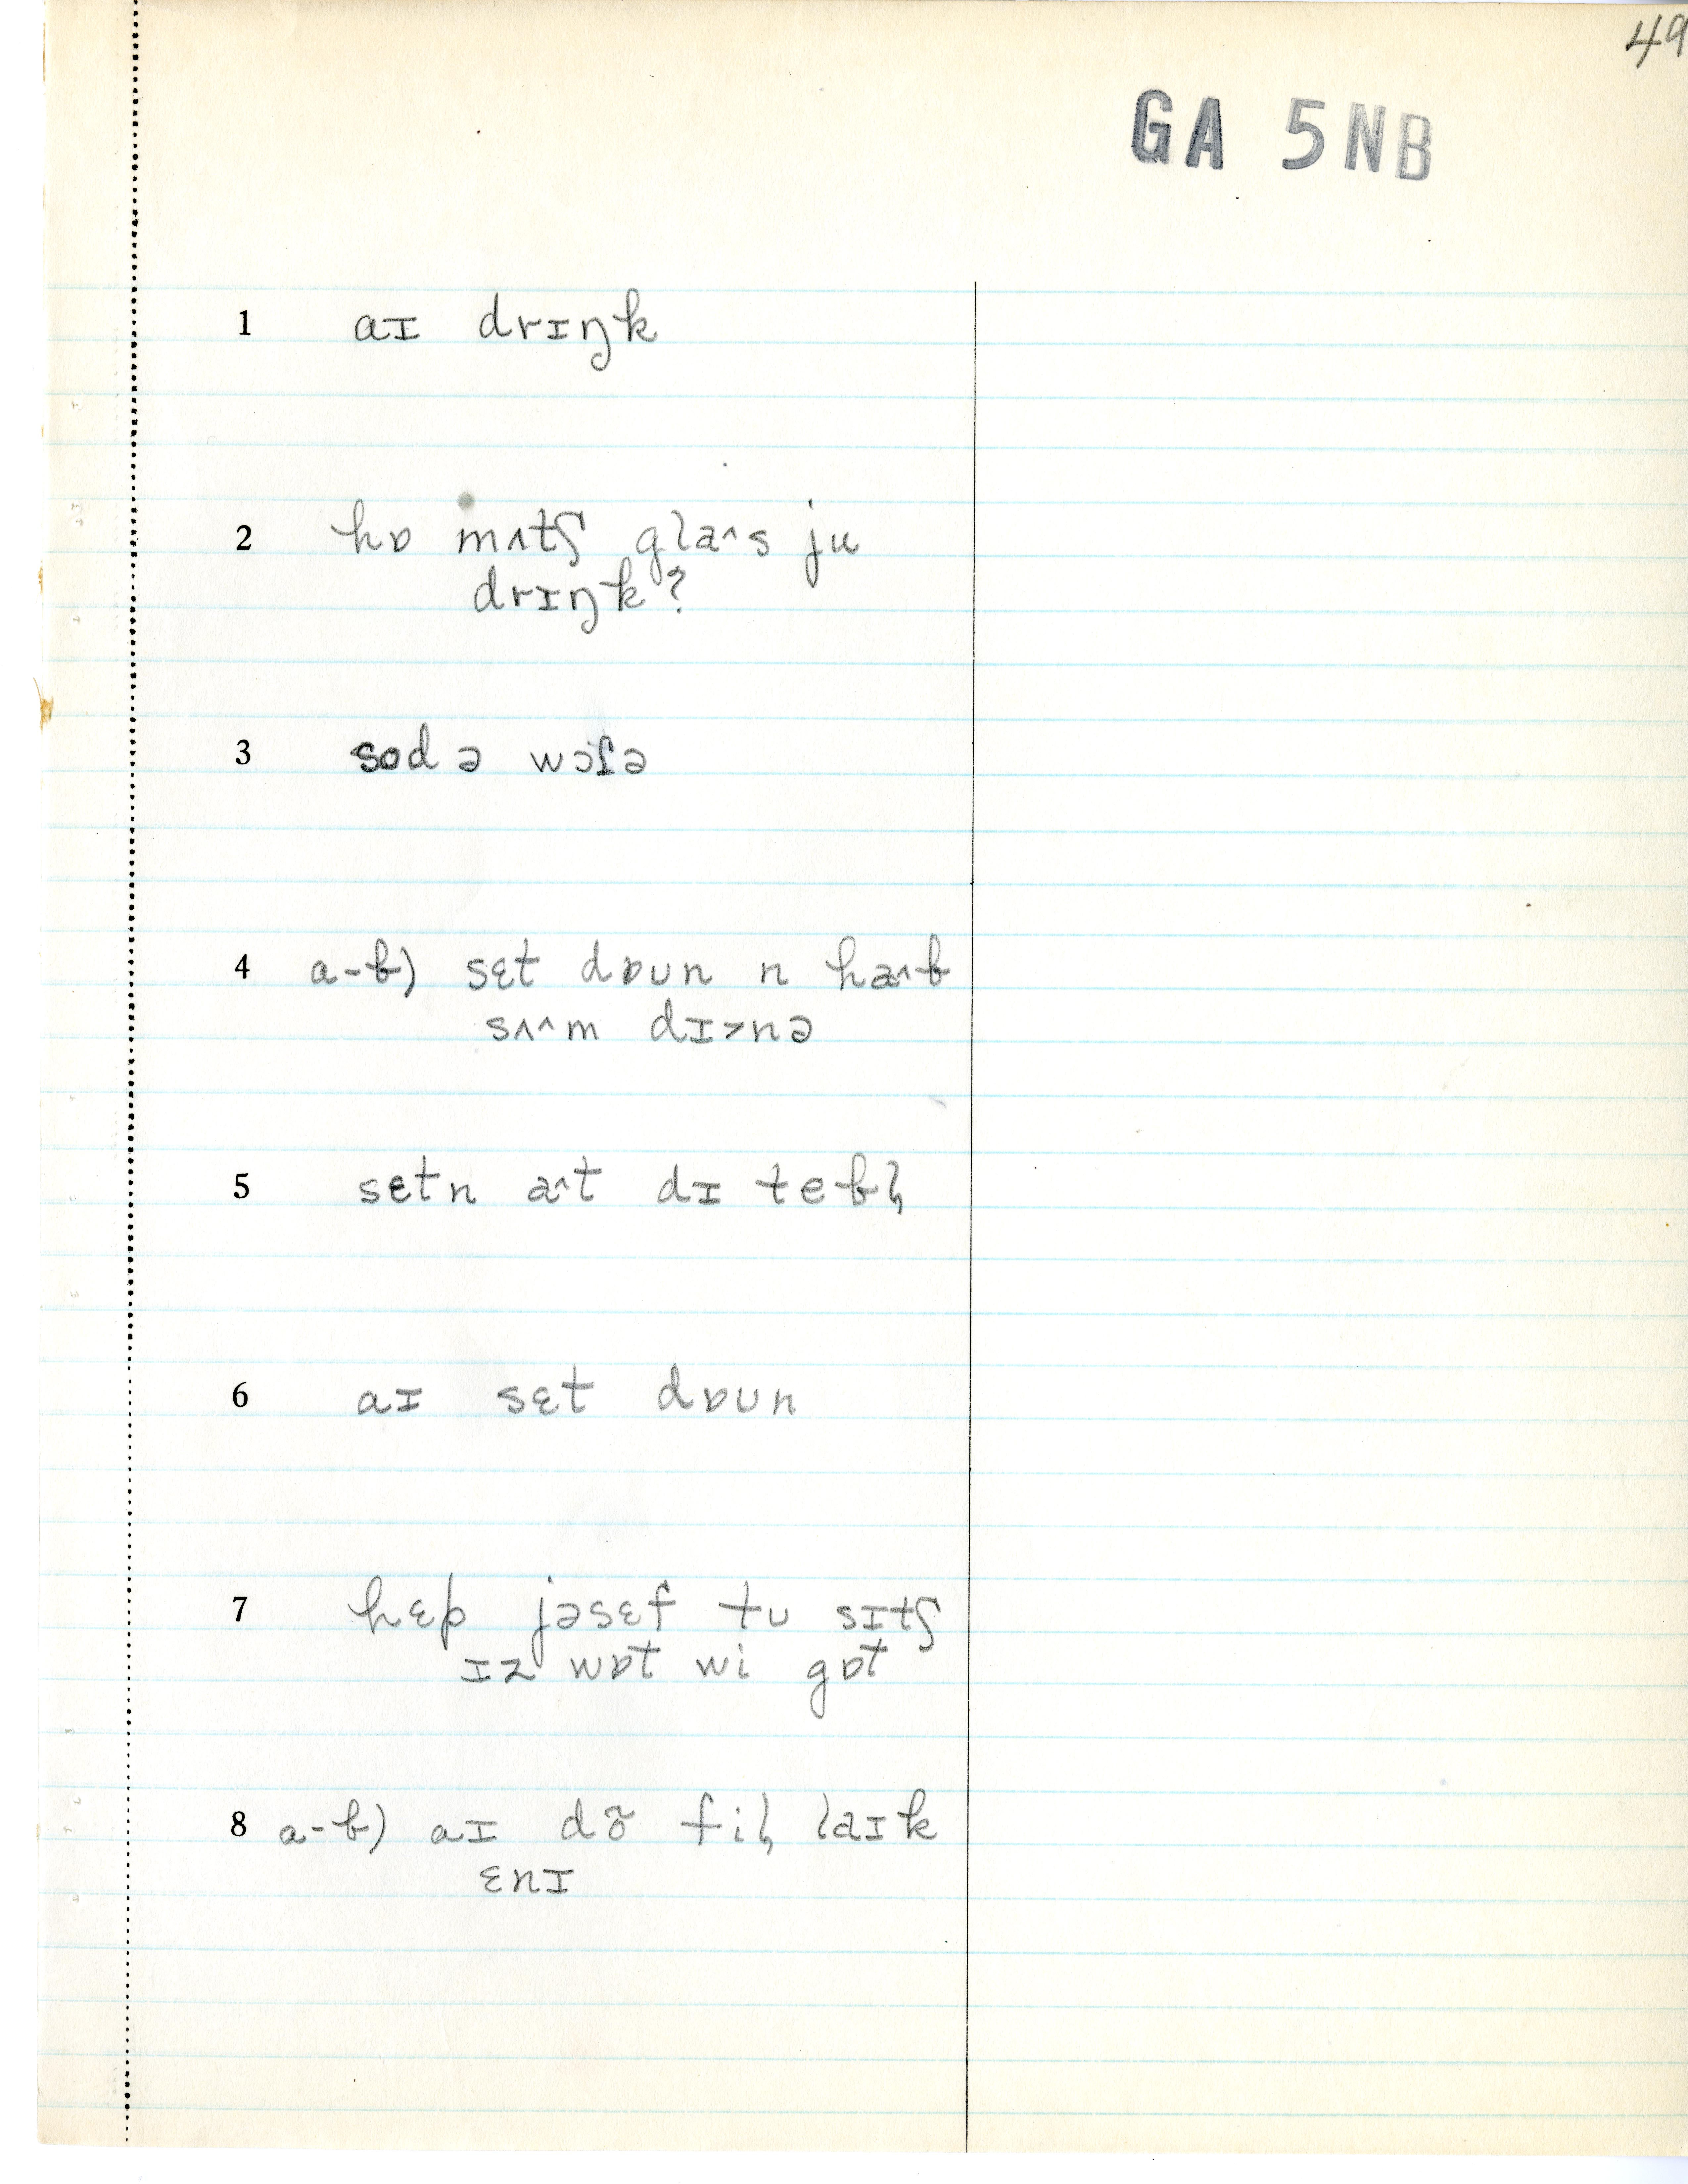 49
GA 5NB
1 aɪ drɪŋk
2 hɒ mʌtʃ glaˆs ju
drɪŋk?
3 sodə wɔɾə
4 a-b) sɛt dɒʊn n haˆb
sʌˆm dɪ˃nə
5 sɛtn aˆt dɪ tebl̩
6 aɪ sɛt dɒʊn
7 hɛp jəsɛf tʊ sɪtʃ
ɪz wɒt wi gɒt
8 a-b) aɪ dõ fil̩ laɪk
ɛnɪ